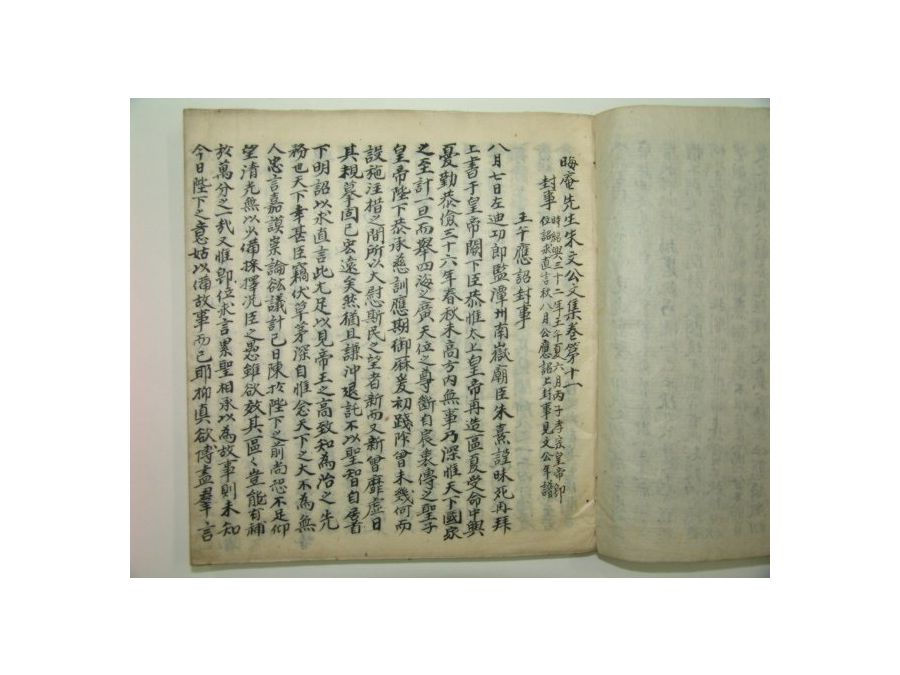 晦庵先生朱文公文集卷第十一
封事 時紹興三十二年壬午夏六月丙子孝宗皇帝即
位詔求直言秋八月公應詔上封事見文公年譜
壬午應詔封事
八月七日左迪功郎監潭州南嶽廟臣朱熹謹昧死再拜
上書于皇帝闕下臣恭惟太上皇帝再造區夏受命中興
憂勤恭儉三十六年春秋未高方內無事乃深惟天下國家
之至計一旦而擧四海之廣天位之尊斷自宸衷傳之聖子
皇帝陛下恭承慈訓應期御厤爰初踐阼曾未幾何而
設施注措之間所以大慰斯民之望者新而又新曾靡虛日
其規摹固已宏遠矣然猶且謙沖退託不以聖智自居首
下明詔以求直言此尤足以見帝王之高致知為治之先
務也天下幸甚臣竊伏草茅深自惟念天下之大不為無
人忠言嘉謨崇論竑議計已日陳於陛下之前尚恐不足仰
望清光無以少備採擇况臣之愚雖欲效其區〻豈能有補
於萬分之一哉又惟卽位求言累聖相承以為故事則未知
今日陛下之意姑以備故事而已耶抑眞欲博盡羣言